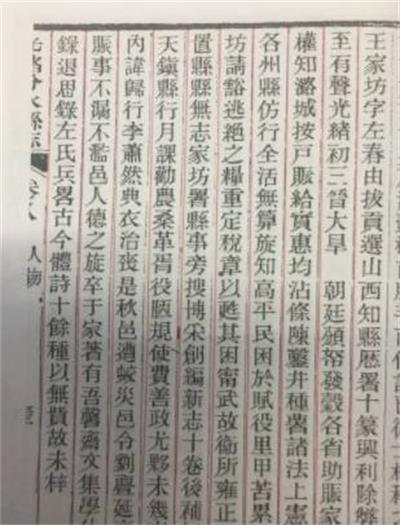 王家坊字左春由拔貢選山西知縣歷署十篆興利除弊
至有聲光緒初三晉大旱　朝廷頒帑發穀各省助賑家
權知潞城按戶賑給實惠均沾條陳鑿井種薯諸法上憲
各州縣仿行全活無算旋知高平民困於賦役里甲苦累
坊請豁逃絕之糧重定稅章以甦其困甯武故衞所雍正
置縣縣無志家坊署縣事旁搜博采創編新志十卷後補
天鎮縣行月課勸農桑革胥役陋規使費善政尤夥未幾
內諱歸行李蕭然典衣治喪是秋邑遭蛟災邑令劉賡延
賑事不漏不濫邑人德之旋卒于家著有吾馨齋文集學
錄退思錄左氏兵畧古今體詩十餘種以無貲故未梓
縣志　卷八　人物